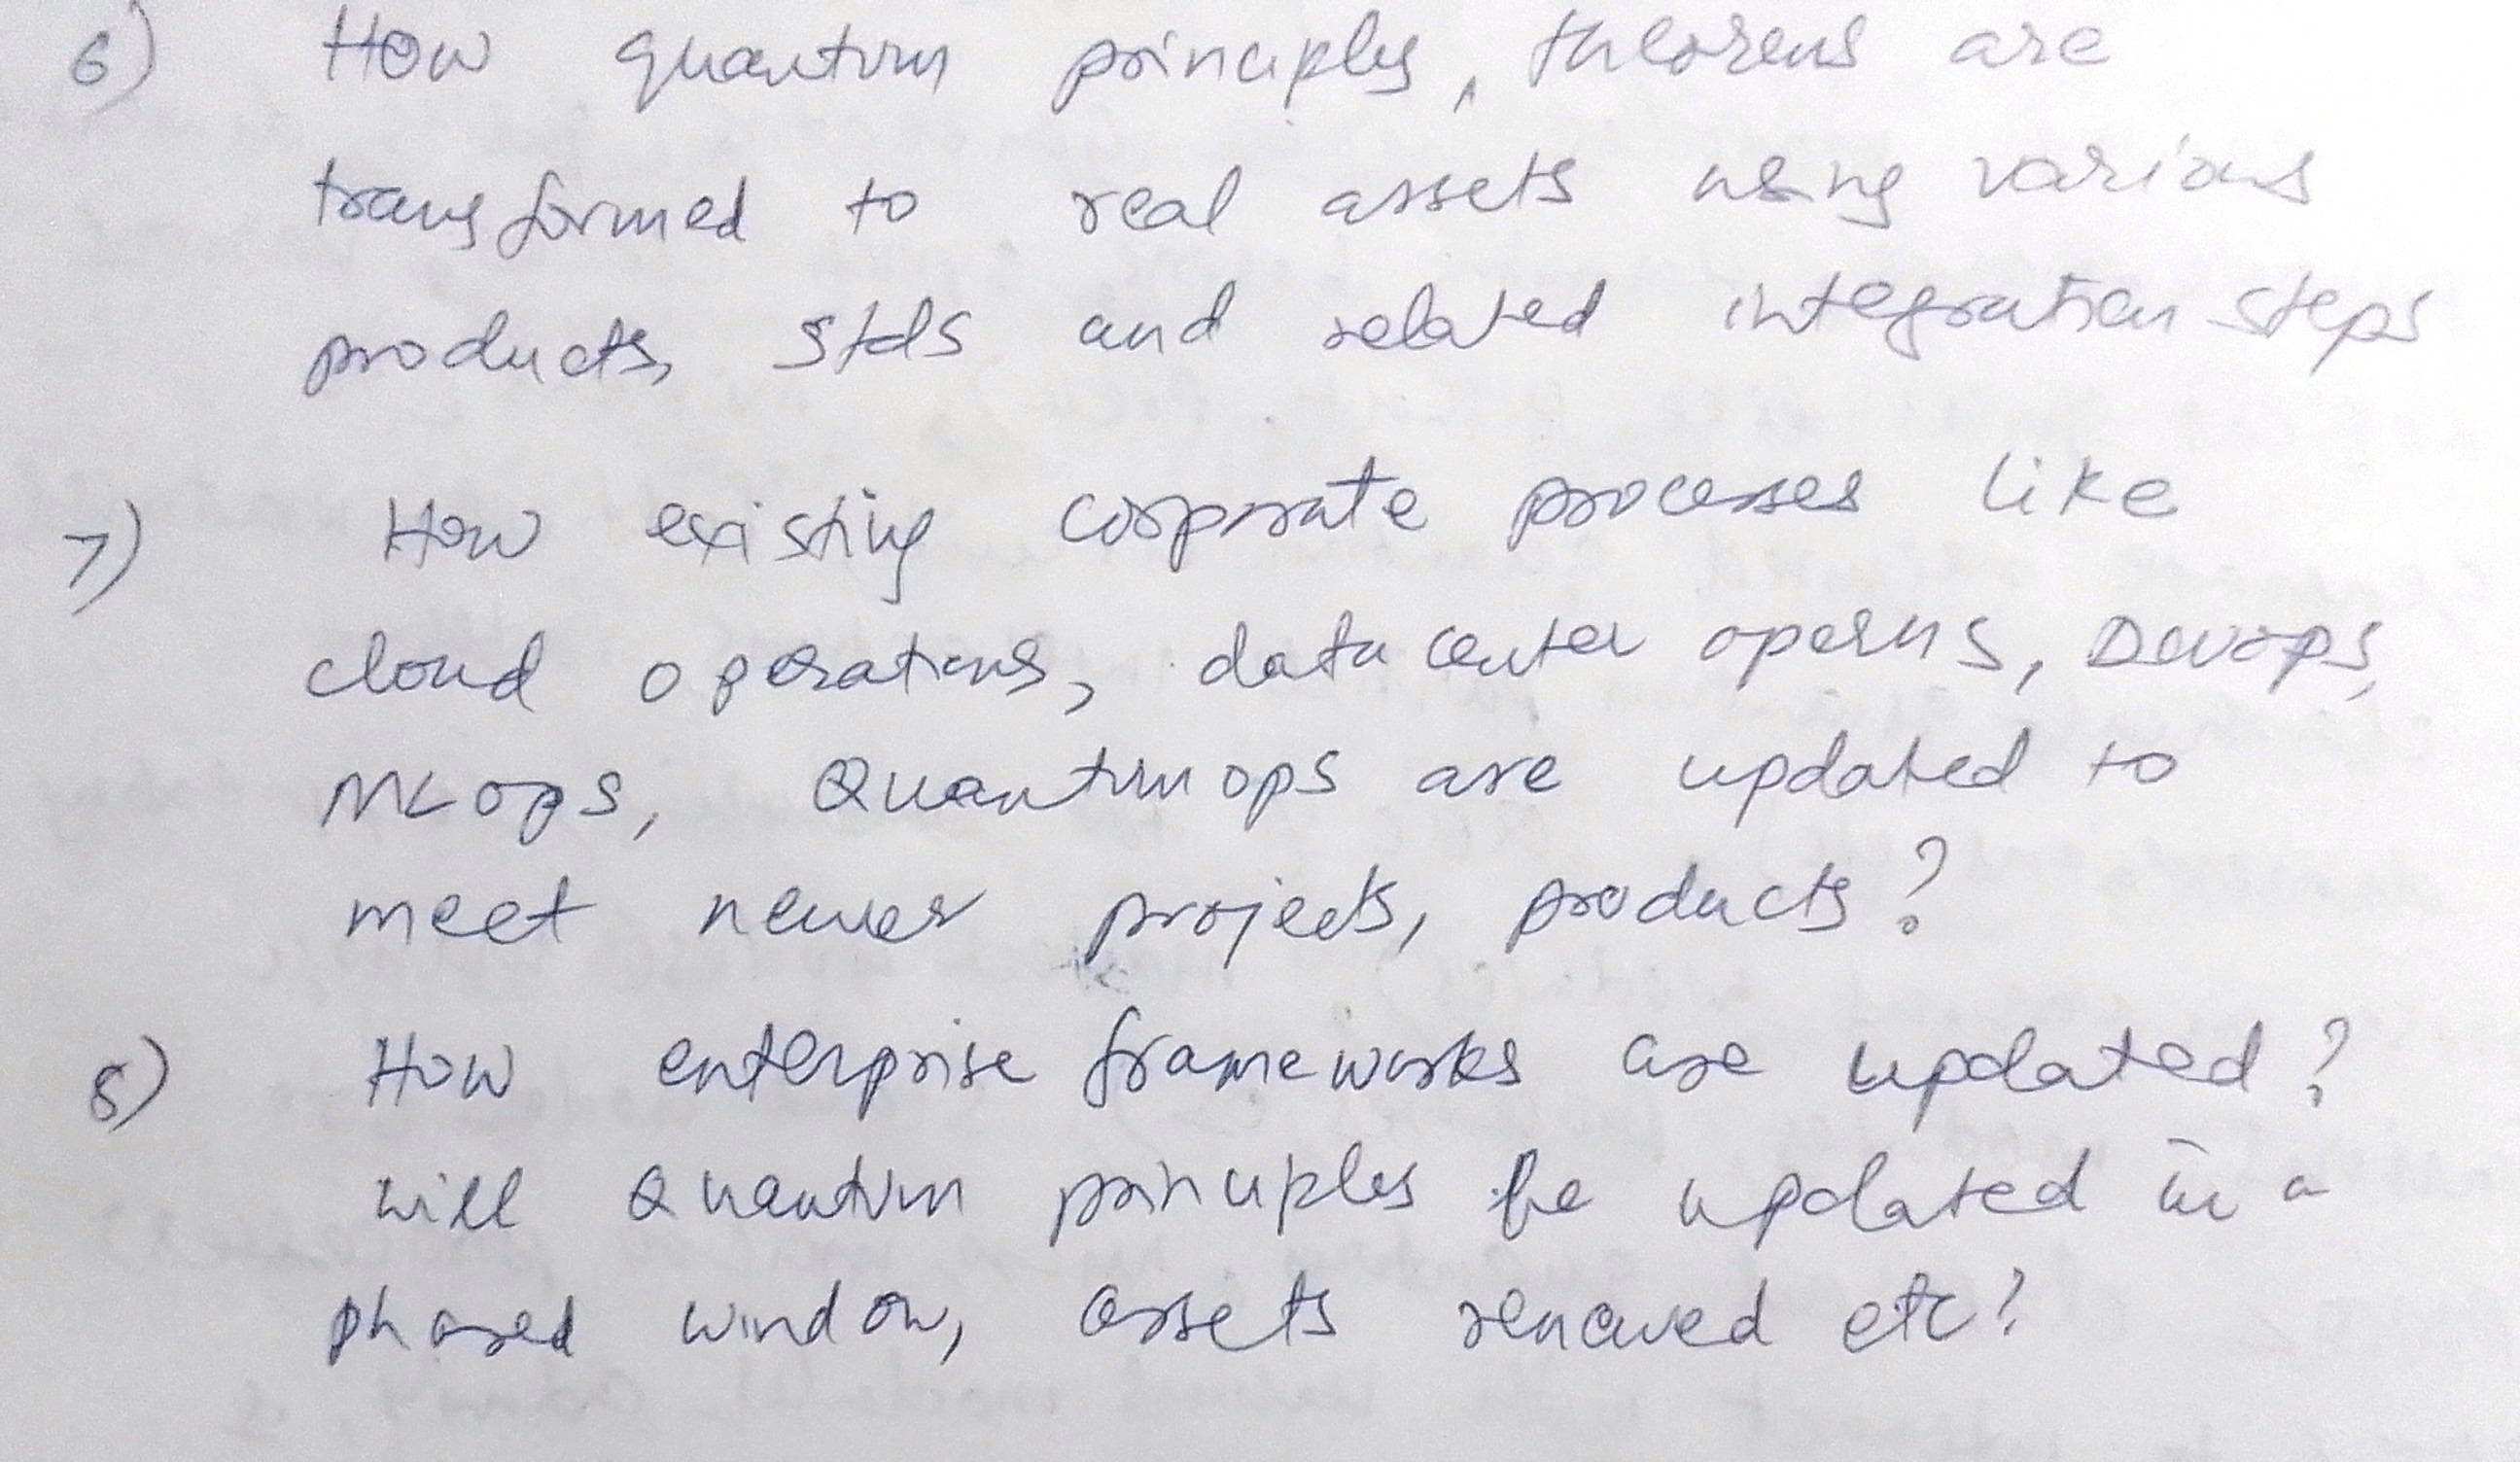 6) How quantum principles, theorems are
transformed to real assets using various
products, stds and related integration steps
7) How existing corporate processes like
cloud operations, data center operns, Devops,
MLops, Quantumops are updated to
meet newer projects, products?
8) How enterprise frameworks are updated?
will Quantum principles be updated in a
phased window, assets renewed etc?